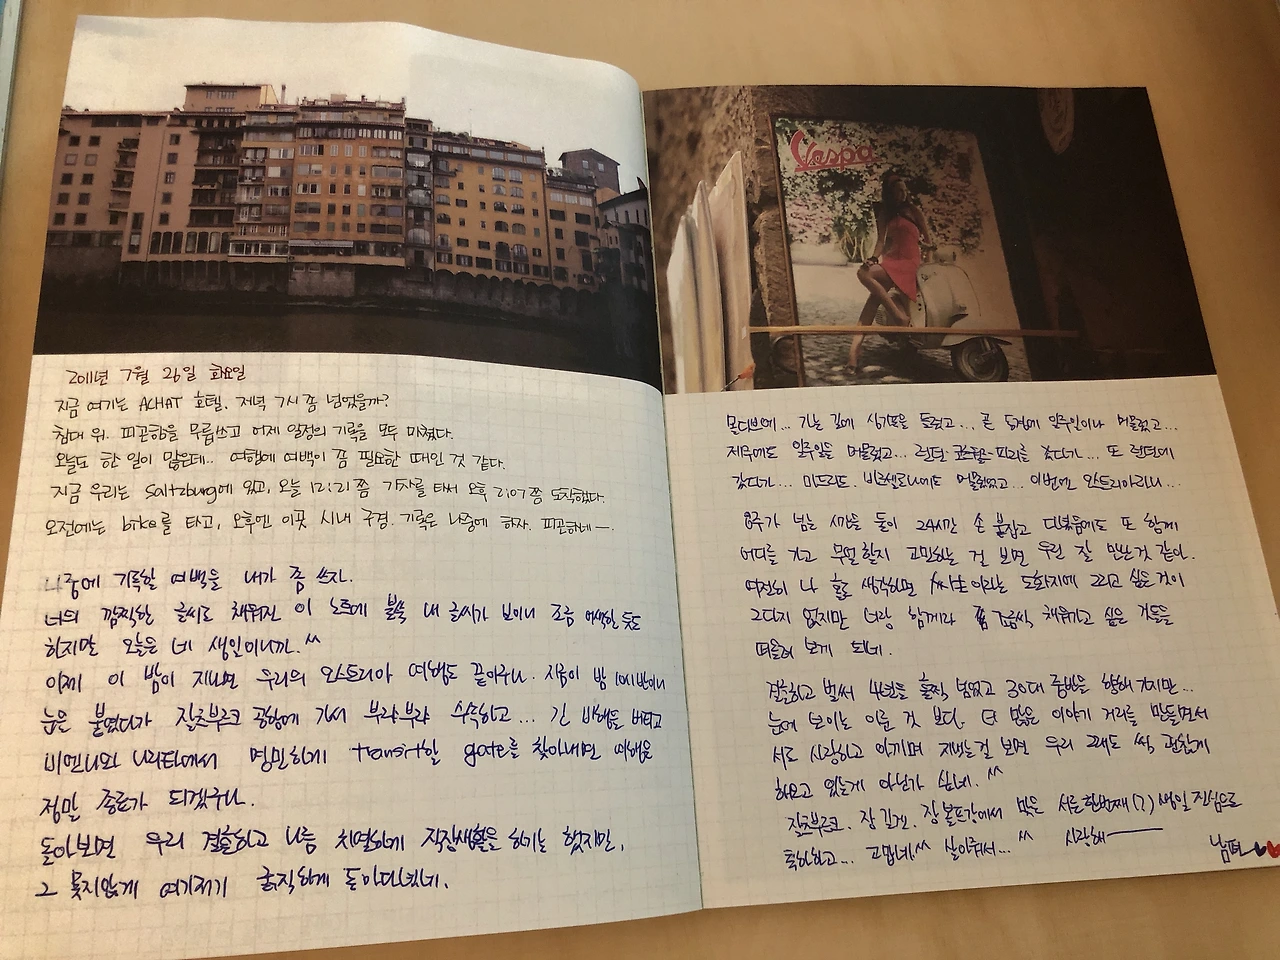 2011년 7월 26일 화요일
지금 여기는 ACHAT 호텔. 저녁 7시 쯤 넘었을까?
침대 위. 피곤함을 무릅쓰고 어제 일정의 기록을 모두 마쳤다.
오늘도 한 일이 많은데.. 여행에 여백이 좀 필요한 때인 것 같다.
지금 우리는 Saltzburg에 있고, 오늘 12:21쯤 기차를 타서 오후 2:07쯤 도착했다.
오전에는 bike를 타고, 오후엔 이곳 시내 구경. 기록은 나중에 하자. 피곤하네—.
나중에 기록할 여백을 내가 좀 쓰자.
너의 깜찍한 글씨로 채워진 이 노트에 불쑥 내 글씨가 보이니 조금 어색한 듯도
하지만 오늘은 네 생일이니까.^^
이제 이 밤이 지나면 우리의 오스트리아 여행도 끝이구나. 지금이 밤 10시반이니
눈을 붙였다가 잘츠부르크 공항에 가서 부랴부랴 수속하고... 긴 비행을 버티고
비엔나와 에서 명민하게 transit할 gate를 찾아내면 여행은
정말 종료가 되겠구나.
돌아보면 우리 결혼하고 나름 치열하게 직장생활을 하기는 했지만,
그 못지않게 여기저기 굵직하게 돌아다녔네.
Vespa
몰디브에... 가는 길에 싱가폴을 들렀고..., 곧 도쿄에 일주일이나 머물렀고...
제주에도 일주일을 머물렀고... 런던 파리를 갔다가... 또 런던에
갔다가... 마드리드 바르셀로나에도 머물렀었고... 이번엔 오스트리아라니...
일주가 넘는 시간을 둘이 24시간 손 붙잡고 다녔음에도 또 함께
어디를 가고 무얼 할지 고민하는 걸 보면 우린 잘 만난 것 같아.
여전히 나 홀로 생각하면 이라는 도화지에 그리고 싶은 것이
그다지 없지만 너랑 함께라 조금씩 채워가고 싶은 것들을
떠올려 보게 되네.
결혼하고 벌써 4년을 훌쩍 넘겼고 30대 중반을 향해 가지만...
눈에 보이는 이룬 것 보다. 더 많은 이야기 거리를 만들면서
서로 사랑하고 아끼며 지내는걸 보면 우리 그래도 썩 괜찮게
하고 있는게 아닌가 싶네.^^
잘츠부르크, 장크트 길겐, 장 볼프강에서 맞은 서른한번째(?) 생일 진심으로
축하하고... 고맙네^^ 살아줘서...^^ 사랑해——
남편